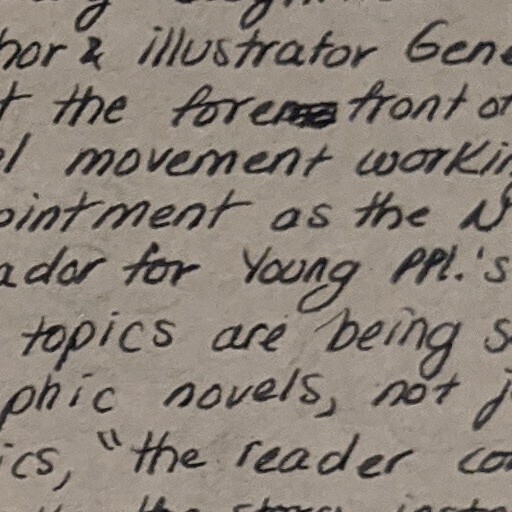 hor & illustrator Gene
t the fore front of
l movement workin
ointment as the N
ador for Young PPl.'s
topics are being s
phic novels, not j
ics, "the reader co